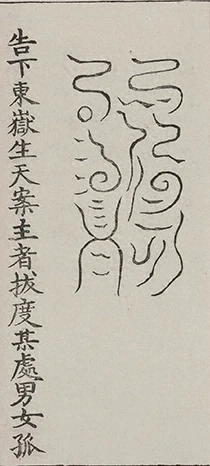 告下東嶽生天案主者拔度某處男女孤